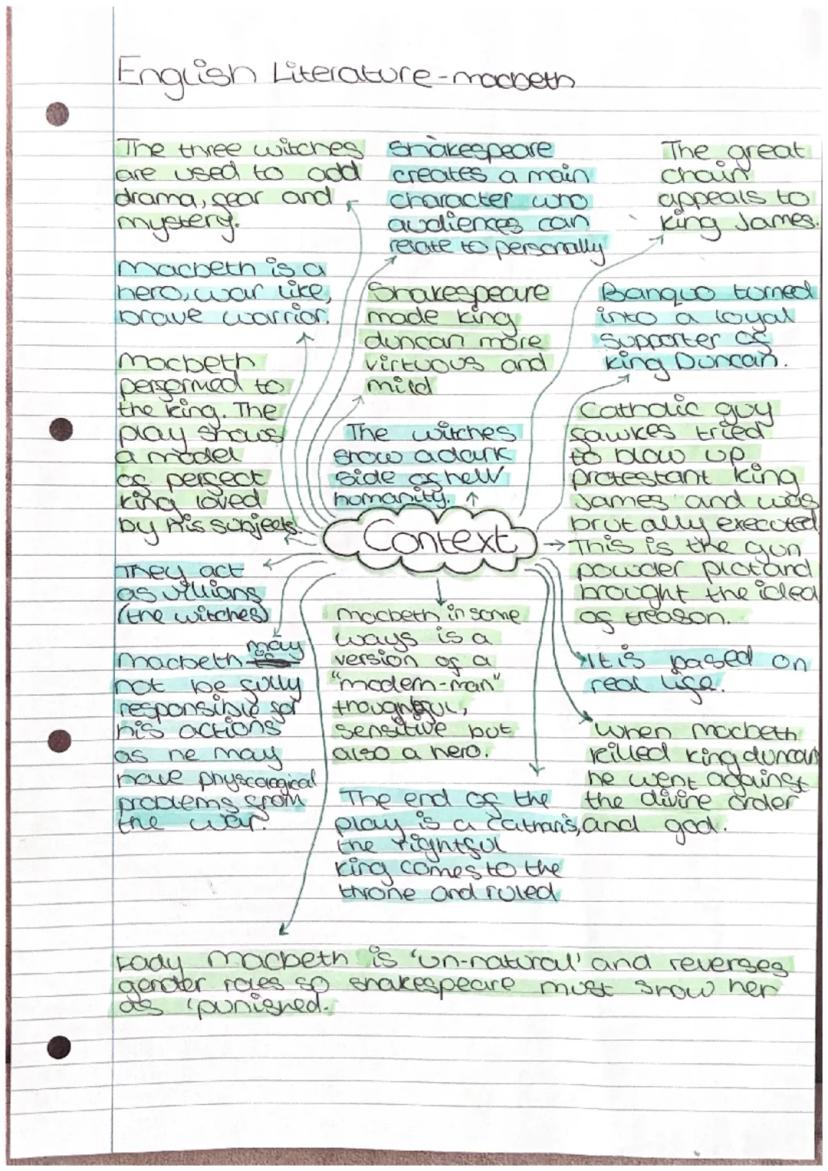 English Literature - macbeth
The three witches
are used to add
drama, fear and
mystery.
Shakespeare
creates a main
character who
audiences can
relate to personally
The great
chain
appeals to
King James.
Macbeth is a
hero, war like,
brave warrior.
Shakespeare
made King
duncan more
virtuous and
mild
Banquo turned
into a loyal
supporter of
King Duncan.
Macbeth
performed to
the king. The
play shows
a model
of perfect
king loved
by his subjects.
The witches
show a dark
side of hell
humanity.
Catholic guy
fawkes tried
to blow up
protestant king
James and was
brutally executed
This is the gun
powder plot and
brought the idea
of treason.
Context
They act
as villians
(the witches)
Macbeth may
not be fully
responsible for
his actions
as he may
have physcological
problems from
the war.
Macbeth in some
ways is a
version of a
"modern-man"
thoughtful,
sensitive but
also a hero.
It is based on
real life.
When Macbeth
killed king duncan
he went against
the divine order
and god.
The end of the
play is a catharis,
the rightful
King comes to the
throne and ruled
Lady Macbeth is 'un-natural' and reverses
gender roles so shakespeare must show her
as 'punished.